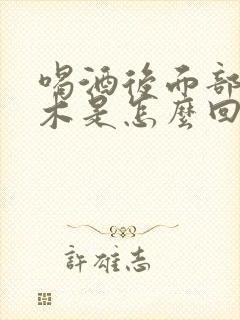 喝酒後而部
木是怎麼回
許雄志